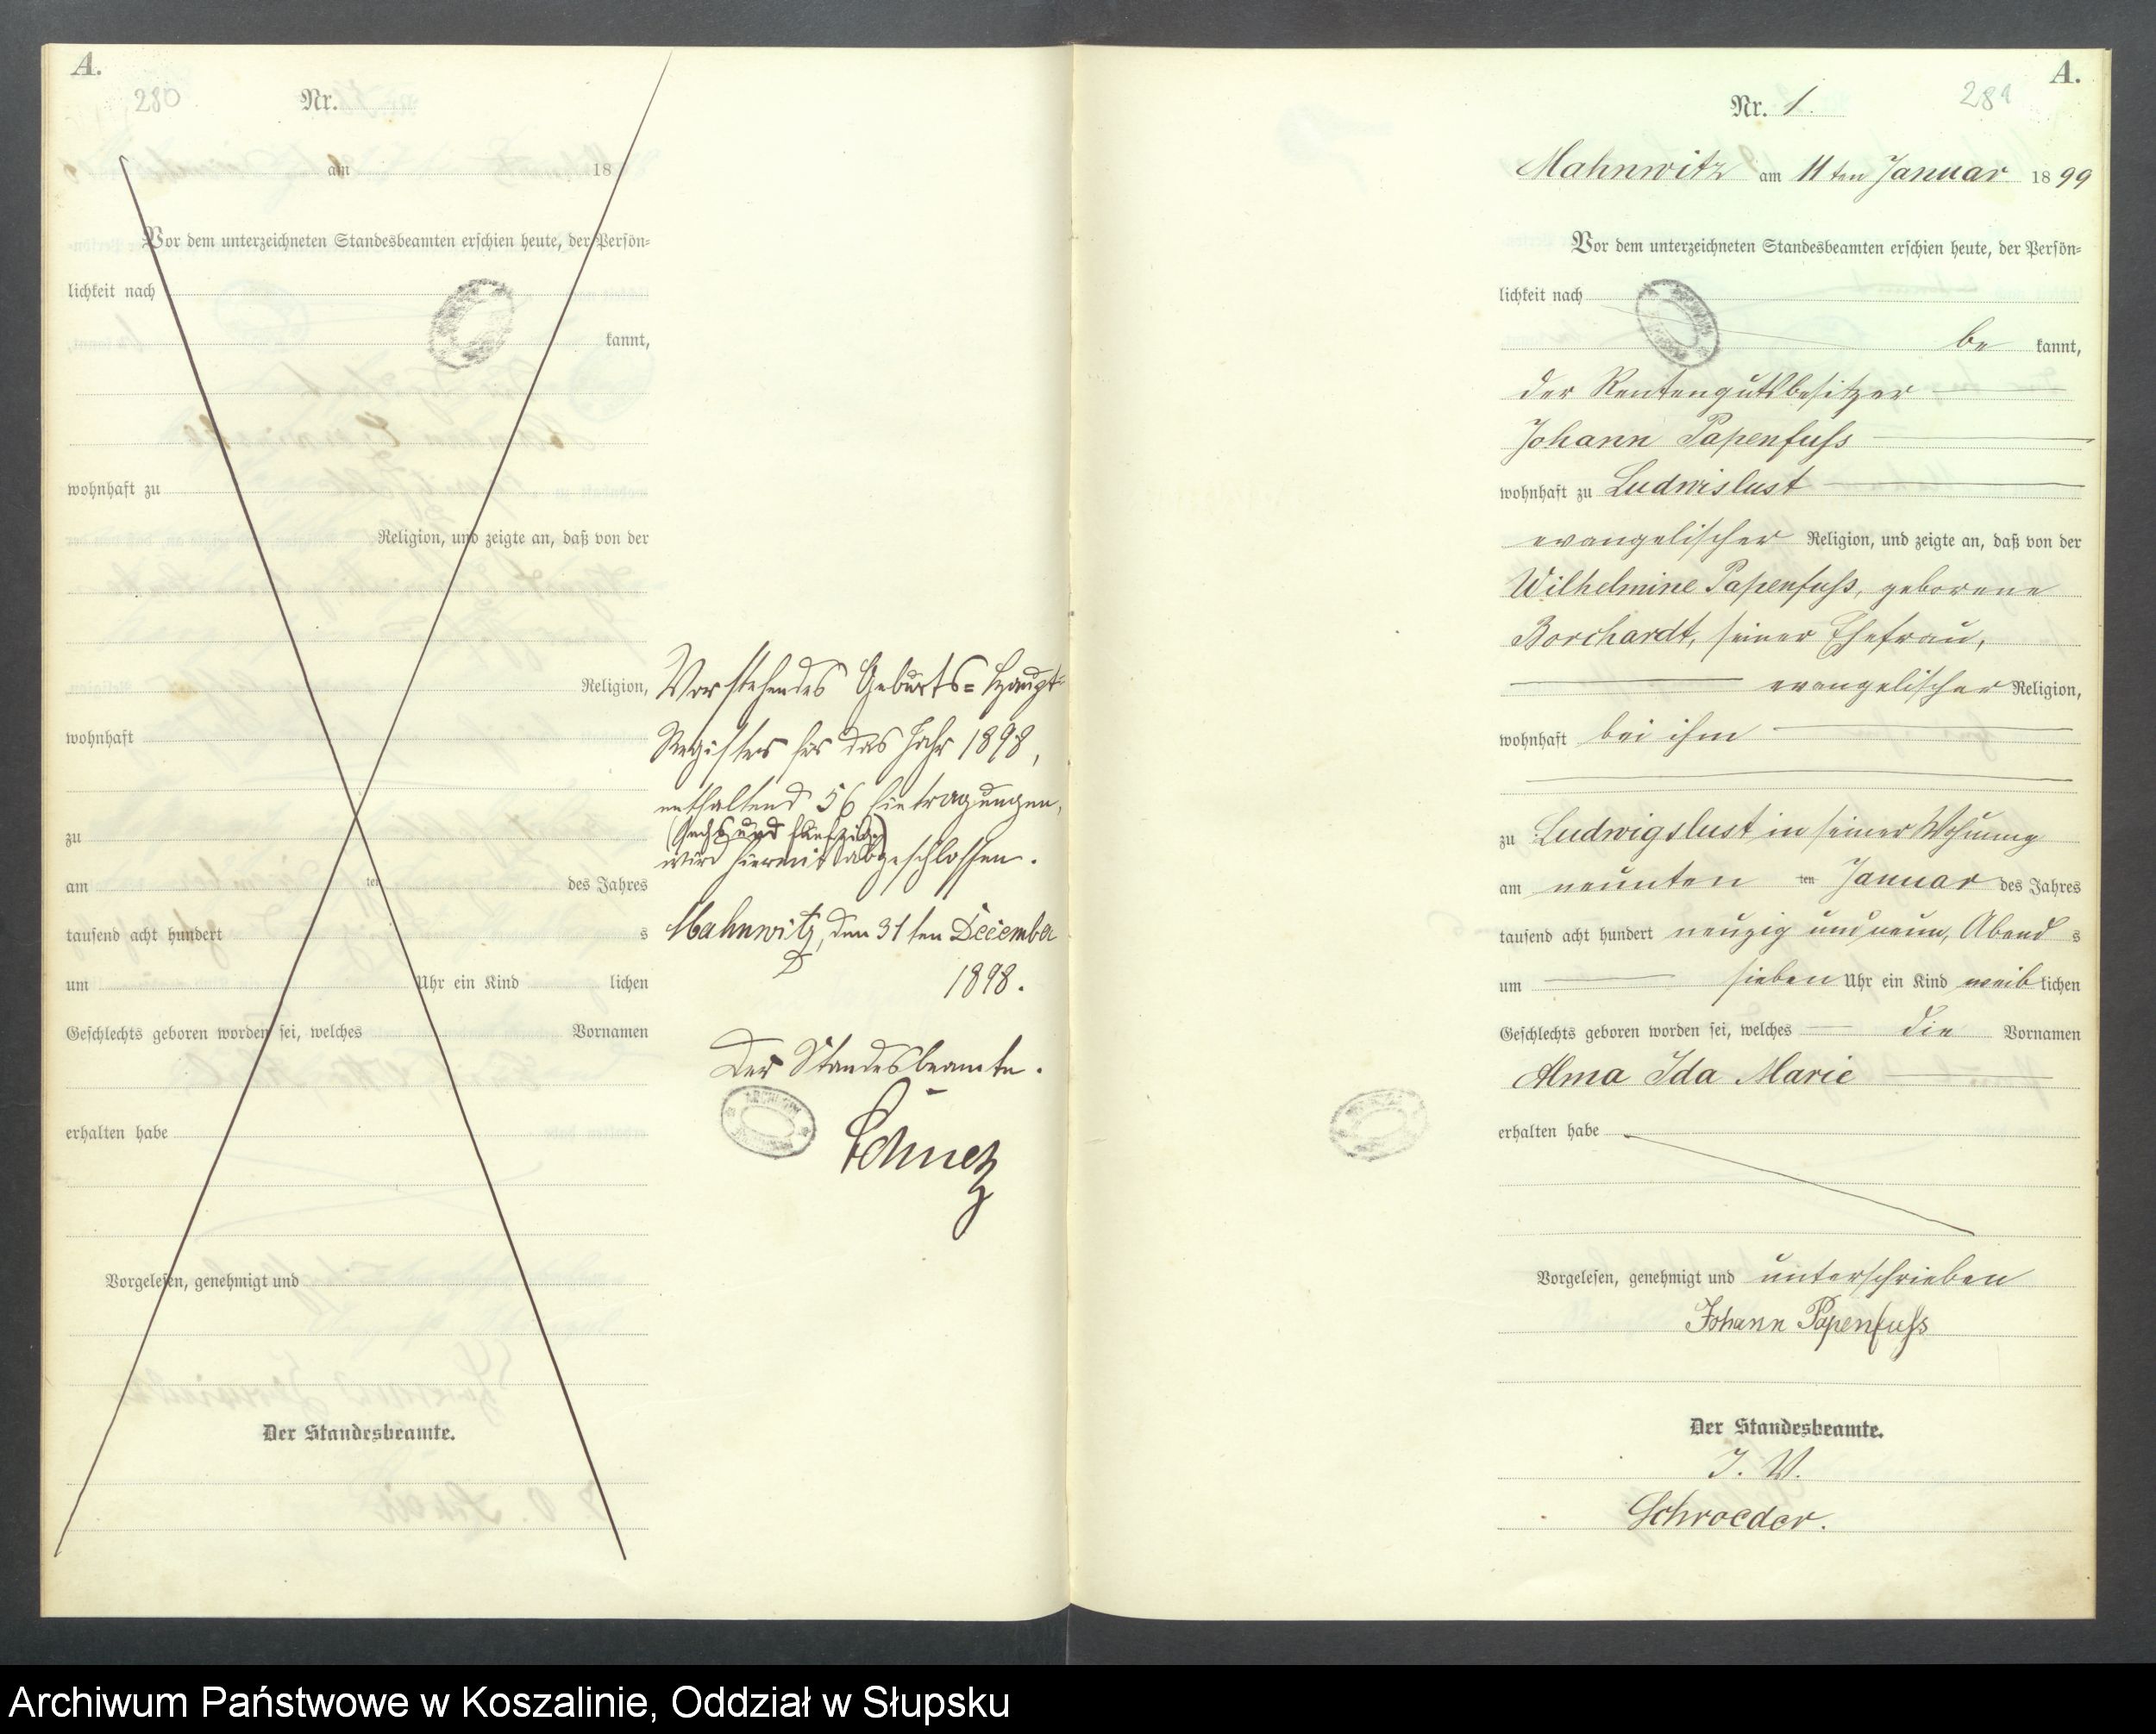 A.
280
Nr.
am 18
Vor dem unterzeichneten Standesbeamten erschien heute, der Persön-
lichkeit nach
kannt,
wohnhaft zu
Religion, und zeigte an, daß von der
Religion,
wohnhaft
zu
am ten des Jahres
tausend acht hundert s
um Uhr ein Kind lichen
Geschlechts geboren worden sei, welches Vornamen
erhalten habe
Vorgelesen, genehmigt und
Der Standesbeamte.
Vorstehendes Geburts-Haupt-
Register für das Jahr 1898,
enthaltend 56 Eintragungen,
(Sechs und fünfzig)
wird hiermit abgeschlossen.
Mahnwitz, den 31ten December
1898.
Der Standesbeamte.
A.
281
Nr. 1.
Mahnwitz am 11ten Januar 1899
Vor dem unterzeichneten Standesbeamten erschien heute, der Persön-
lichkeit nach
be kannt,
der Rentengutsbesitzer
Johann Papenfuss
wohnhaft zu Ludwislust
evangelischer Religion, und zeigte an, daß von der
Wilhelmine Papenfuss, geborene
Borchardt, seiner Ehefrau,
evangelischer Religion,
wohnhaft bei ihm
zu Ludwigslust in seiner Wohnung
am neunten ten Januar des Jahres
tausend acht hundert neunzig und neun, Abend s
um sieben Uhr ein Kind weiblichen
Geschlechts geboren worden sei, welches die Vornamen
Alma Ida Marie
erhalten habe
Vorgelesen, genehmigt und unterschrieben
Johann Papenfuss
Der Standesbeamte.
J. V.
Schroeder.
Archiwum Państwowe w Koszalinie, Oddział w Słupsku